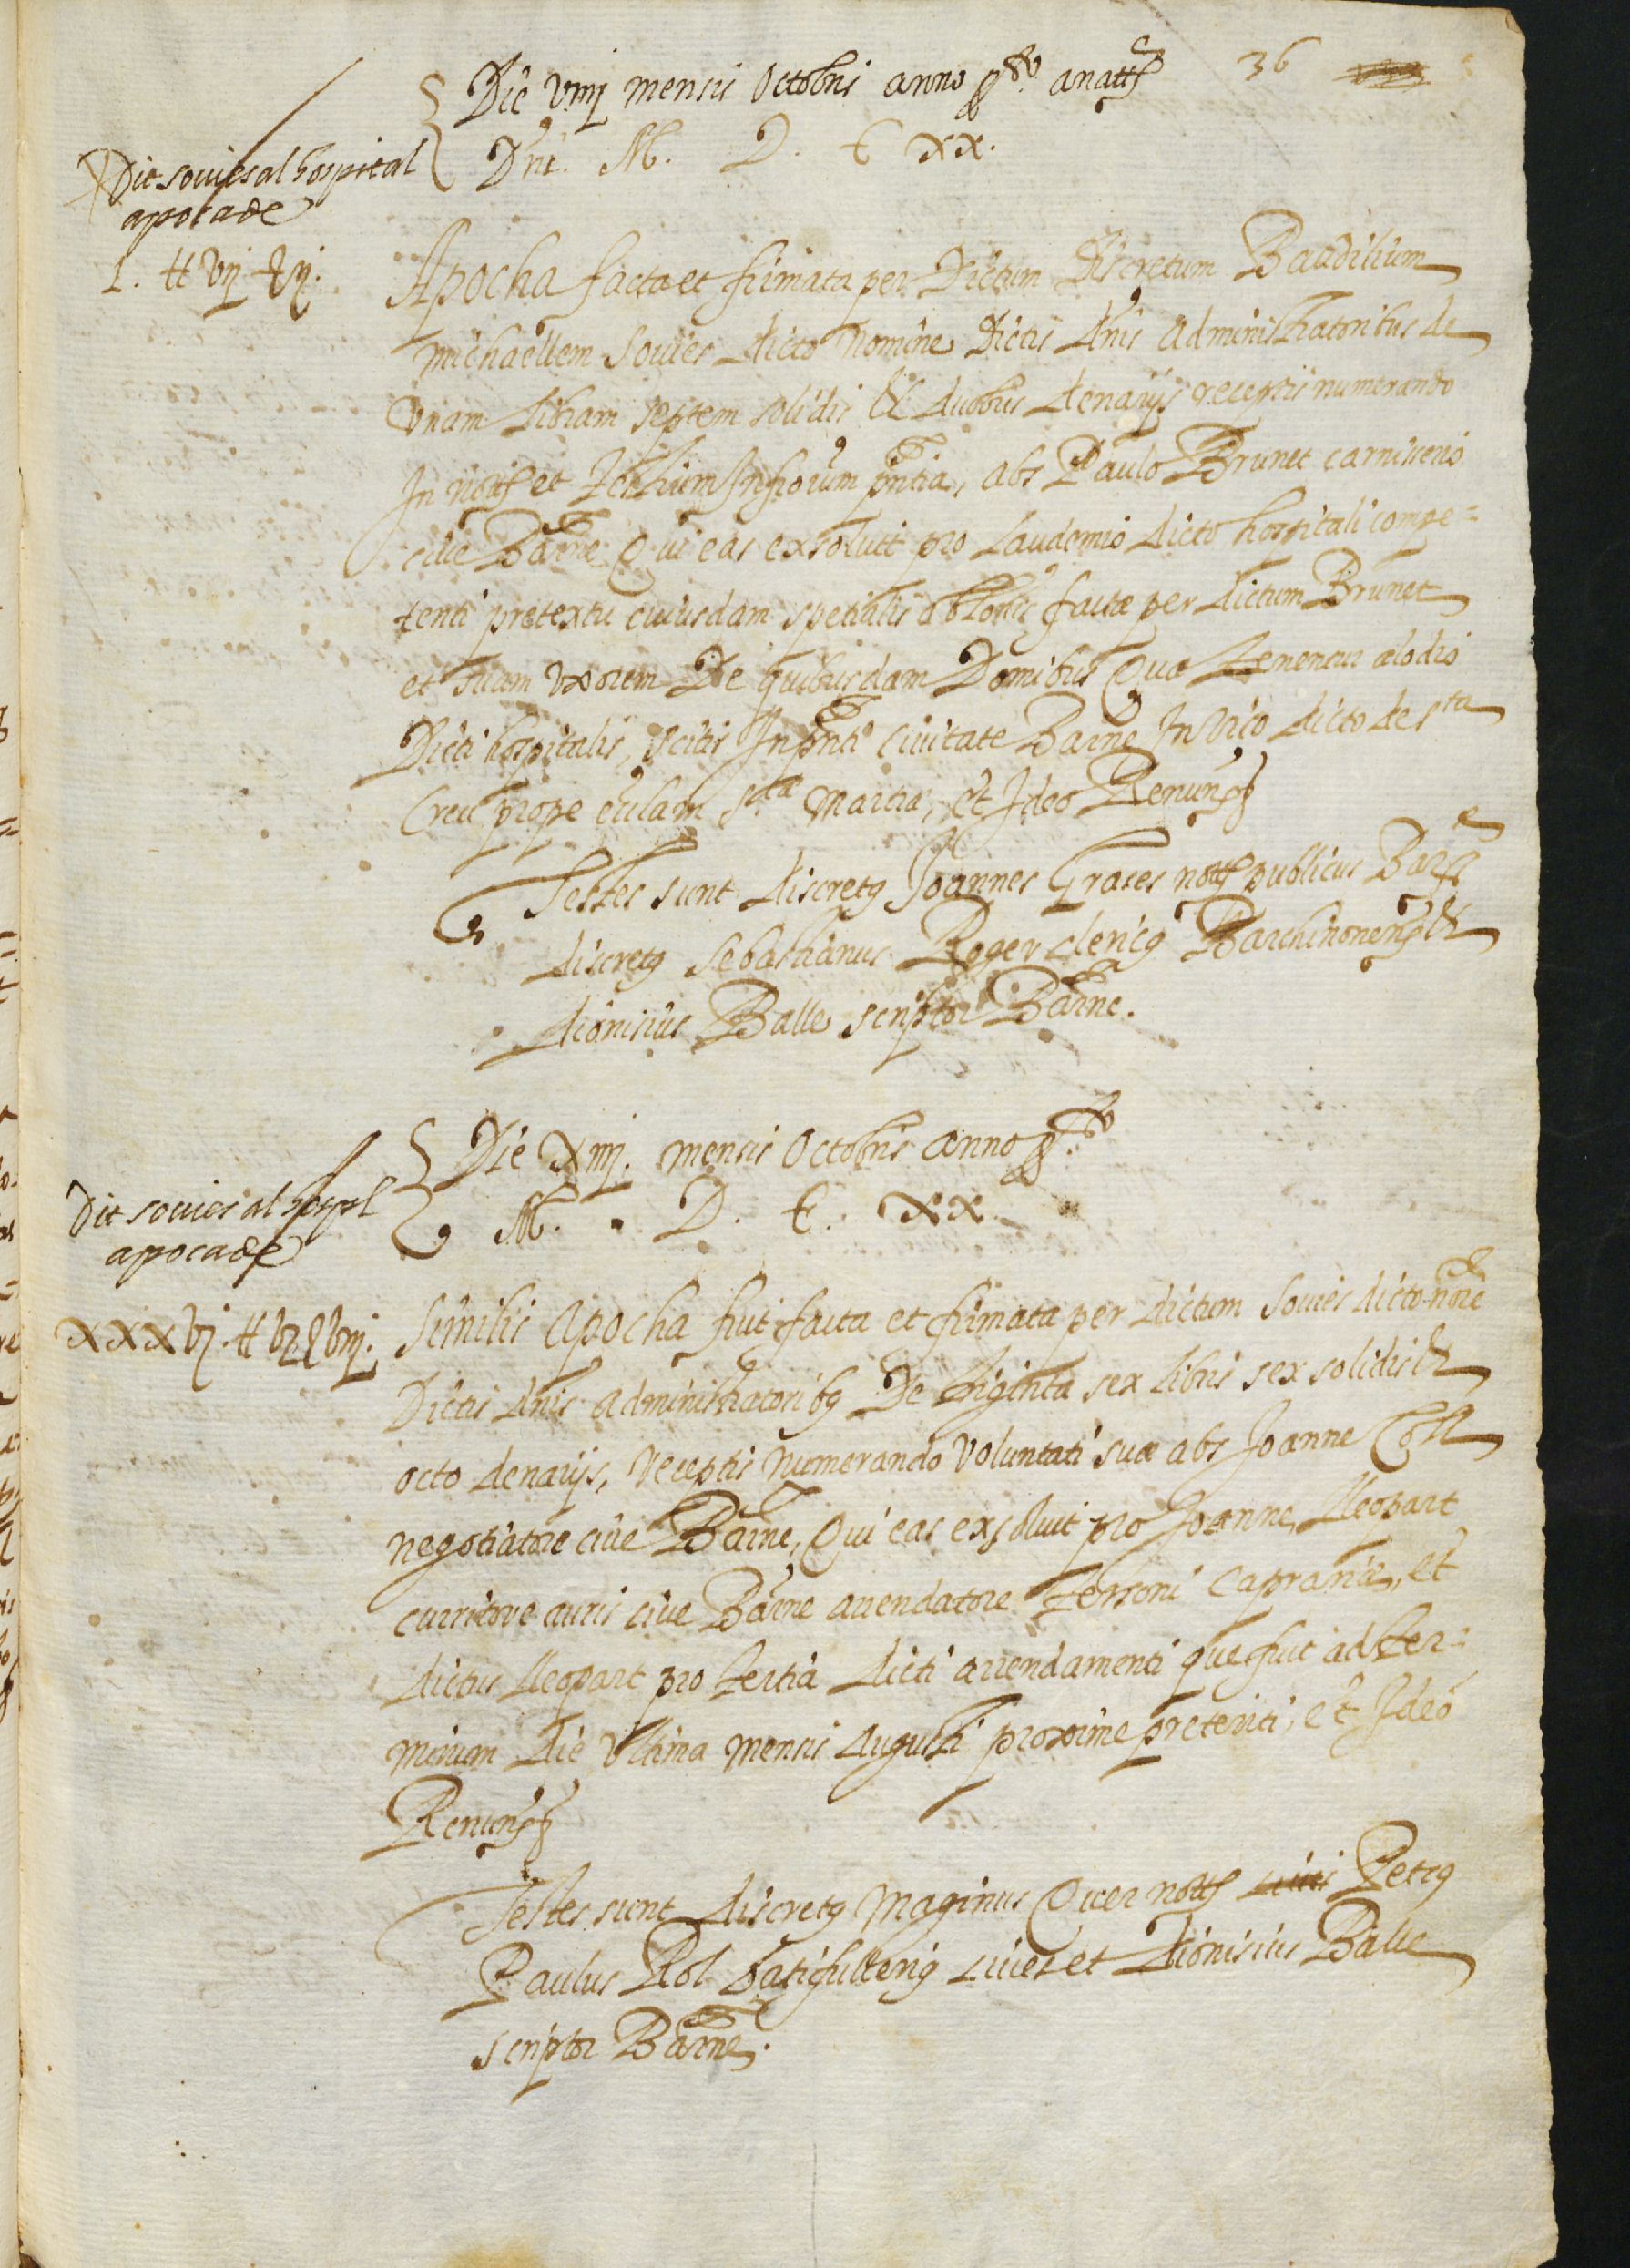 36
Die viiij mensis Octobris anno pdto. a natte
Dni. M. D. C xx.
Dit souies al hospital
apoca de
1. tt vij š ij.
Apocha facta et firmata per Dictum Discretum Baudilium
michaellem Souies dicto nomine Dictis dnis administratoribus de
vnam libram septem solidis & duobus denarijs receptis numerando
In notis et testium Infrorum pntia, abs Paulo Brunet carnicerio
ciue Barne Qui eas exsoluit pro laudemio dicto hospitali compe=
tenti pretextu cuiusdam spetialis oblonis factæ per dictum Brunet
et suam vxorem De quibusdam Domibus Quæ tenentur alodio
Dicti hospitalis, scitis In pnti Ciuitate Barne In vico dicto de sta
Creu prope ecclam stæ Martiæ, et Ideo Renuns
Testes sunt discretq Joannes Grases notts publicus Barne
discretq Sebastianus Roger clericq Barchinonensis &
dionisius Balle scriptor Barne.
Die xiiij. mensis Octobris anno pdto.
M. D. C. xx.
Dit souies al hospl
apoca de
xxxvj. tt vj š viij.
Similis Apocha fuit facta et firmata per dictum Souies dicto noie
Dictis dnis administratoribq De triginta sex libris sex solidis &
octo denarijs, receptis numerando voluntati suæ abs Joanne Coll
negotiatore ciue Barne, Qui eas exsoluit pro Joanne Lleopart
curritore auris ciue Barne arrendatore terroni Caprariæ, et
dictus lleopart pro tertia dicti arrendamenti que fuit ad ter=
minum die vltima mensis Augusti proxime preteriti, et Ideo
Renuns
Testes sunt discretq Maginus Quer notts Petrq
Paulus Rol batifulleriq ciues et dionisius Balle
scriptor Barne.